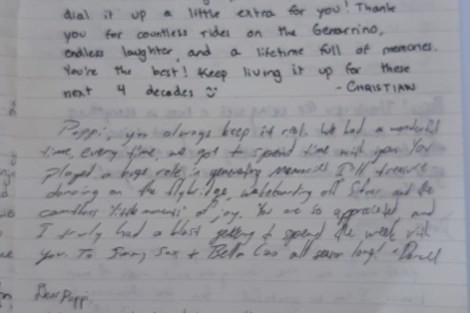 dial it up a little extra for you! Thank
you for countless rides on the Genarrino,
endless laughter, and a lifetime full of memories.
You're the best! Keep living it up for these
next 4 decades
- CHRISTIAN
Poppi, you always keep it real. We had a wonderful
time, every time, we got to spend time with you. You
played a huge role in generating memories I'll treasure
dancing on the flybridge, wakeboarding off and the
countless of joy. You are so appreciated and
I truly had a blast getting to spend the week with
you. To + Bella all long!
Dear Poppi,